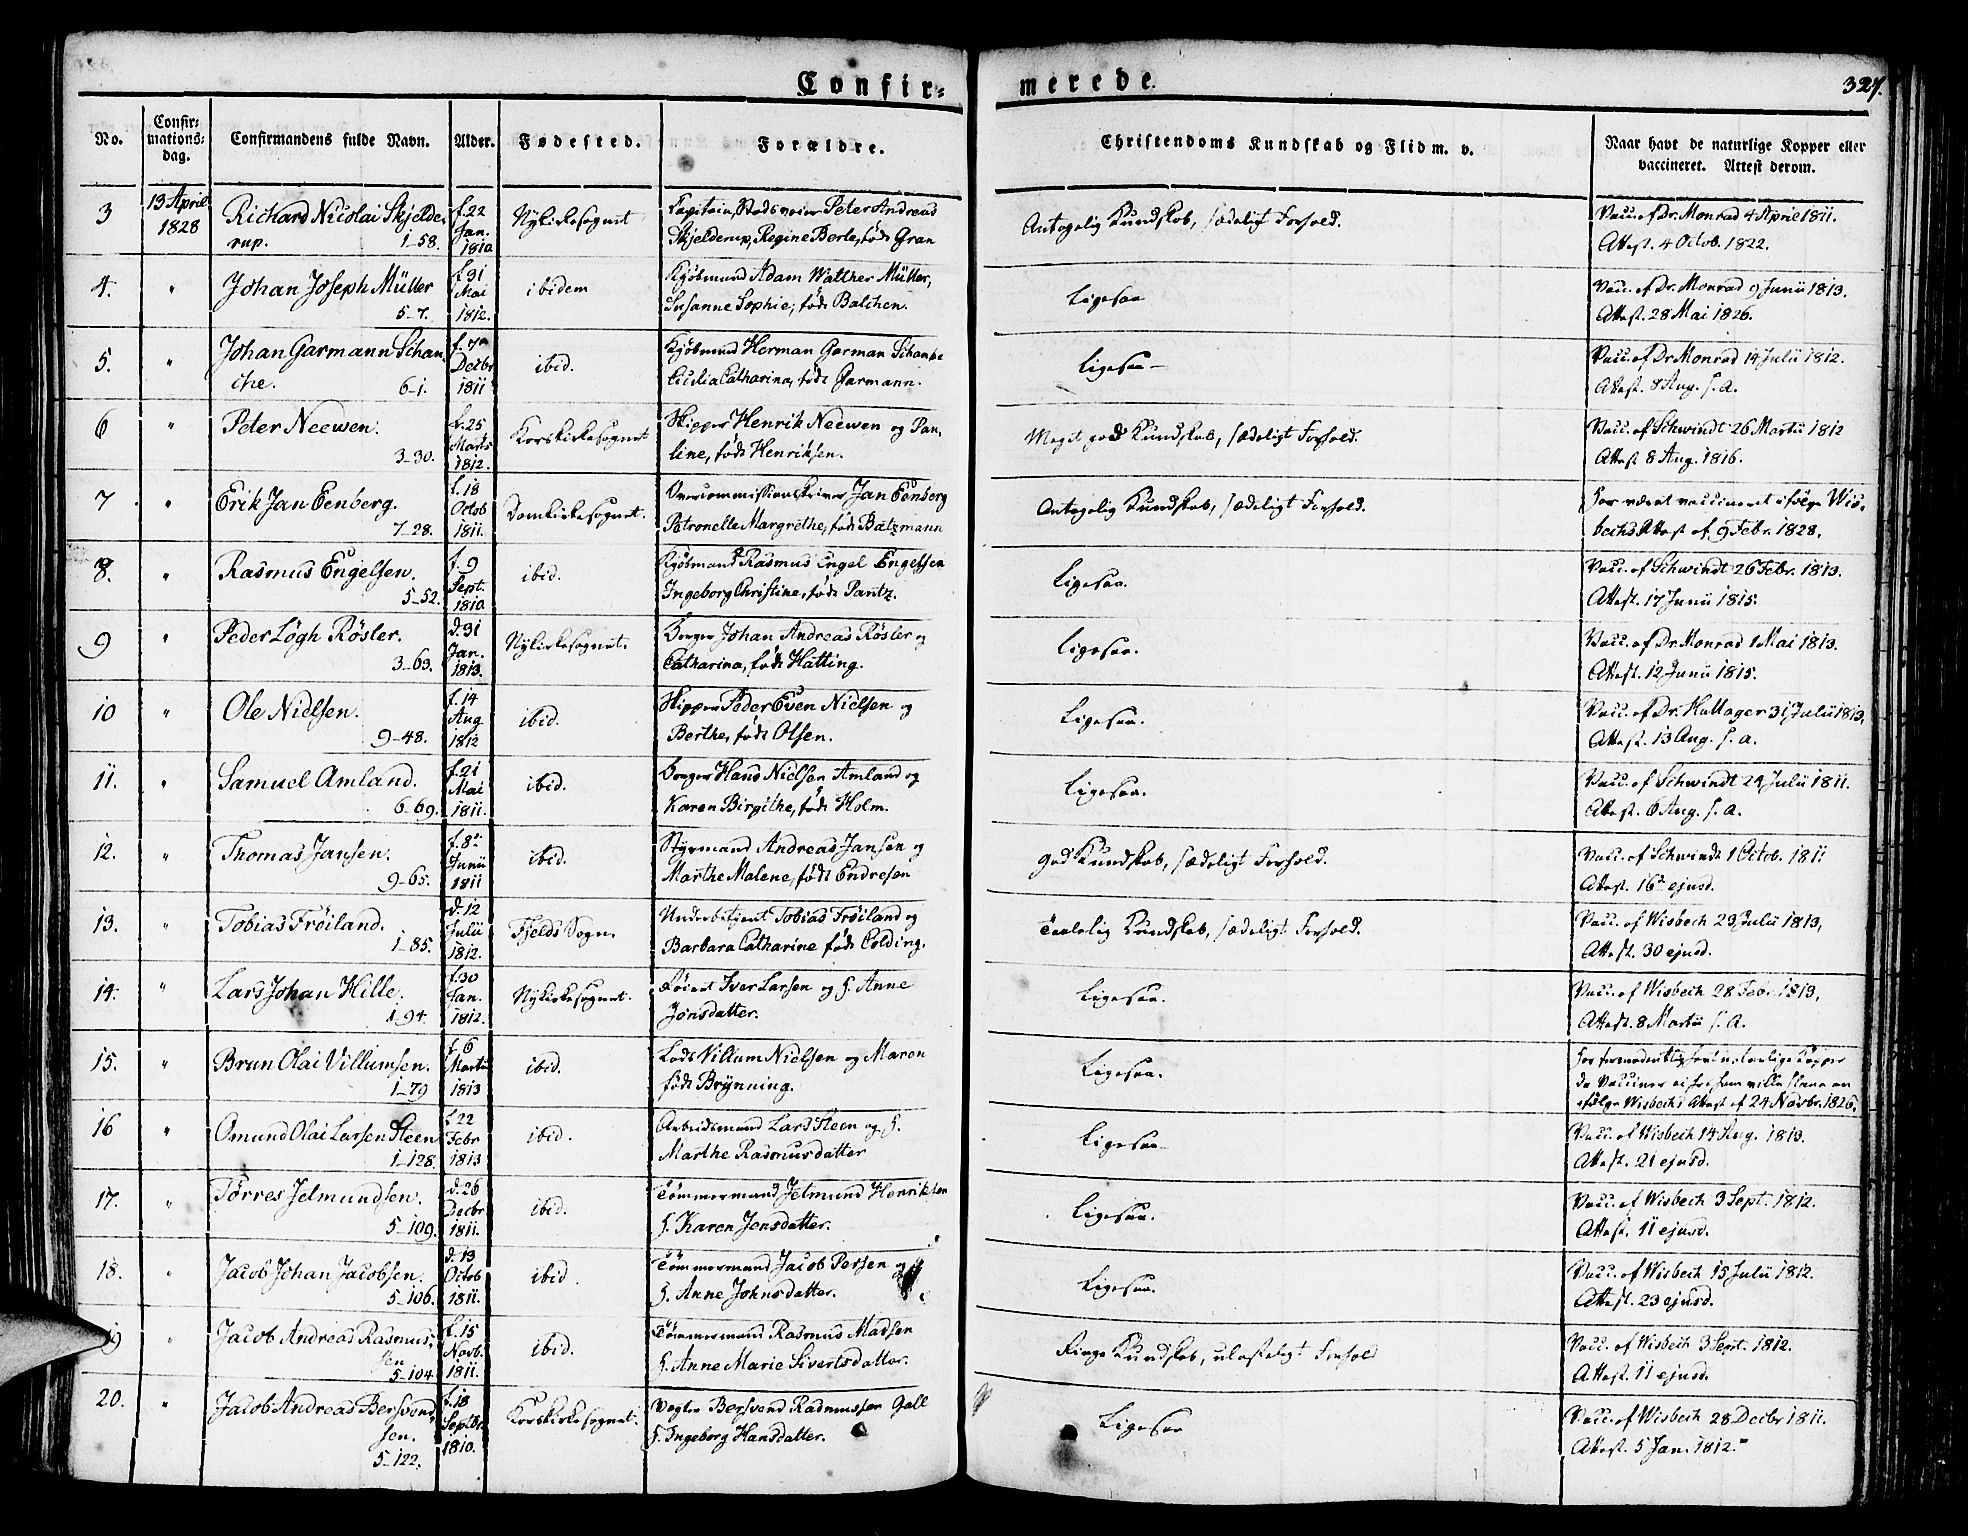 Confir=
merede.
327.
No.
Confir=
mations=
dag.
Confirmandens fulde Navn.
Alder.
Fødested.
Forældre.
Christendoms Kundskab og Flid m. v.
Naar havt de naturlige Kopper eller
vaccineret. Attest derom.
3
13 April
1828
Richard Nicolai Skjelde,
rup.
1-58.
f. 22
Jan.
1810
Nykirkesognet
Peter Andreas
Skjelderup, Regine Berle, født Gran
Antagelig Kundskab, sædeligt Forhold.
Vacc. af Dr. Monrad 4 April 1811.
Attest. 4 Octob. 1822.
4.
"
Johan Joseph Müller
5-7.
f. 31
Mai
1812.
ibidem
Kjøbmand Adam Walther Müller,
Susanne Sophie, født Balchen.
Ligesaa
Vacc. af Dr. Monrad 9 Junii 1813.
Attest. 28 Mai 1826.
5.
"
Johan Garmann Schan,
che.
6-1.
f. 7
Decbr
1811
ibid.
Kjøbmand Herman Garman Schanke
Cicilia Catharina, født Garmann.
Ligesaa
Vacc. af Dr Monrad 14 Julii 1812.
Attest. 8 Aug. s. a.
6
"
Peter Neewen.
3-30.
f. 25
Marts
1812.
Korskirkesognet
Skipper Henrik Neewen og Pau,
line, født Henriksen.
Meget god Kundskab, sædeligt Forhold.
Vacc. af Schwindt 26 Martii 1812
Attest 8 Aug. 1816.
7
"
Erik Jan Eenberg.
7-28.
f. 18
Octob
1811.
Domkirkesognet.
Overcommissionsskriver Jan Eenberg
Petronelle Margrethe, født Baltzmann
Antagelig Kundskab, sædeligt Forhold.
Har været vaccineret ifølge Wis,
bechs Attest af 9 Febr. 1828.
8.
"
Rasmus Engelsen.
5-52.
f. 9
Sept.
1810
ibid.
Kjøbmand Rasmus Engel Engelsen
Ingeborg Christine, født Pantz.
Ligesaa.
Vacc. af Schwindt 26 Febr. 1813.
Attest. 17 Junii 1815.
9
"
Peder Løgh Røsler.
3-63.
d. 31
Jan.
1813.
Nykirkesognet.
Borger Johan Andreas Røsler og
Catharina, født Hatting.
Ligesaa.
Vacc. af Dr. Monrad 1 Mai 1813.
Attest. 12 Junii 1815.
10
"
Ole Nielsen.
9-48.
f. 14
Aug
1812
ibid.
Skipper Peder Even Nielsen og
Berthe, født Olsen.
Ligesaa.
Vacc. af Dr. Hattager 31 Julii 1813,
Attest. 13 Aug. s. a.
11.
"
Samuel Amland.
6-69.
f. 21
Mai
1811.
ibid.
Borger Hans Nielsen Amland og
Karen Birgithe, født Holm.
Ligesaa.
Vacc. af Schwindt 24 Julii 1811.
Attest. 6 Aug. s. a.
12.
"
Thomas Jansen.
9-65.
f. 8
Junii
1811
ibid.
Styrmand Andreas Jansen og
Marthe Malene, født Endresen
God Kundskab, sædeligt Forhold.
Vacc. af Schwindt 1 Octob. 1811
Attest. 16 ejusd.
13.
"
Tobias Frøiland.
1-85.
d. 12
Julii
1812.
Fjelds Sogn.
Underbetjent Tobias Frøiland og
Barbara Catharine født Colding.
Taalelig Kundskab, sædeligt Forhold.
Vacc. af Wisbech 23 Julii 1813,
Attest. 30 ejusd.
14.
"
Lars Johan Hille.
1-94.
f. 30
Jan.
1812.
Nykirkesognet.
Iver Larsen og H. Anne
Jonsdatter.
Ligesaa.
Vacc. af Wisbech 28 Febr. 1813,
Attest. 8 Martii s. a.
15.
"
Brun Olai Villumsen.
1-79
f. 6
Martii
1813
ibid.
Lods Villum Nielsen og Maren
født Brynning.
Ligesaa.
Har formodentlig havt naturlige Kopper
da Vaccinen ei har ham ville slaae an
ifølge Wisbechs Attest af 24 Novbr. 1826.
16
"
Omund Olai Larsen Steen
1-128.
f. 22
Febr
1813
ibid.
Arbeidsmand Lars Steen og H.
Marthe Rasmusdatter
Ligesaa
Vacc. af Wisbech 14 Aug. 1813.
Attest. 21 ejusd.
17.
"
Tørres Jetmundsen.
5-109.
d. 26
Decbr
1811.
ibid.
Tømmermand Jetmund Henriksen
H. Karen Jensdatter.
Ligesaa.
Vacc. af Wisbech 3 Sept. 1812.
Attest. 11 ejusd.
18.
"
Jacob Johan Jacobsen.
5-106.
d. 13
Octob
1811.
ibid.
Tømmermand Jacob Persen og
H. Anne Johnsdatter.
Ligesaa.
Vacc. af Wisbech 15 Julii 1812.
Attest. 23 ejusd.
19
"
Jacob Andreas Rasmus,
sen
5-104.
f. 15
Novb.
1811.
ibid.
Tømmermand Rasmus Madsen
H. Anne Marie Sivertsdatter.
Ringe Kundskab, ulasteligt Forhold
Vacc. af Wisbech 3 Sept. 1812.
Attest. 11 ejusd.
20.
"
Jacob Andreas Bersvend,
sen.
5-122.
f. 18
Septbr
1810.
Korskirkesognet.
Vægter Bersvend Rasmussen Gall
H. Ingeborg Hansdatter.
Ligesaa
Vacc. af Wisbech 28 Decbr 1811.
Attest. 5 Jan. 1812.